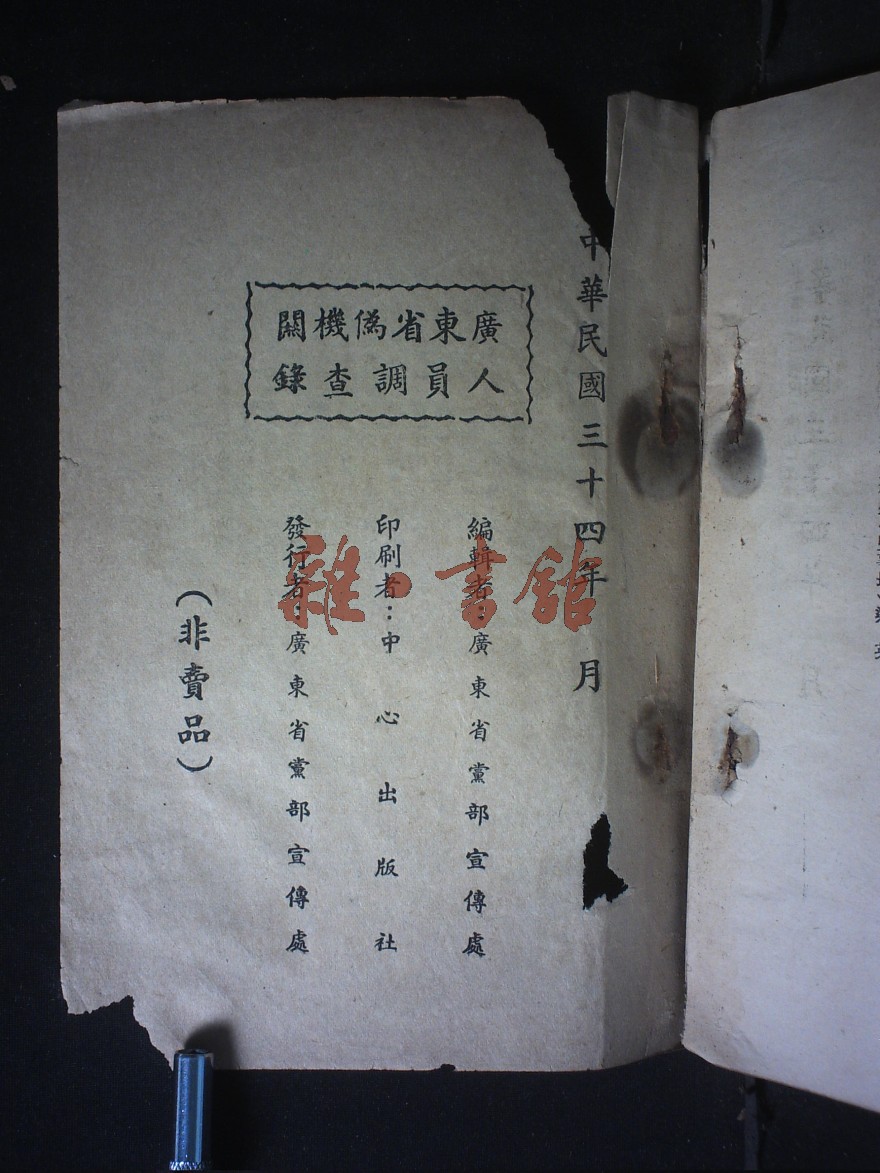 中華民國三十四年 月
廣東省偽機關
人員調查錄
編輯者：廣東省黨部宣傳處
印刷者：中心出版社
發行者：廣東省黨部宣傳處
（非賣品）
雜·書館